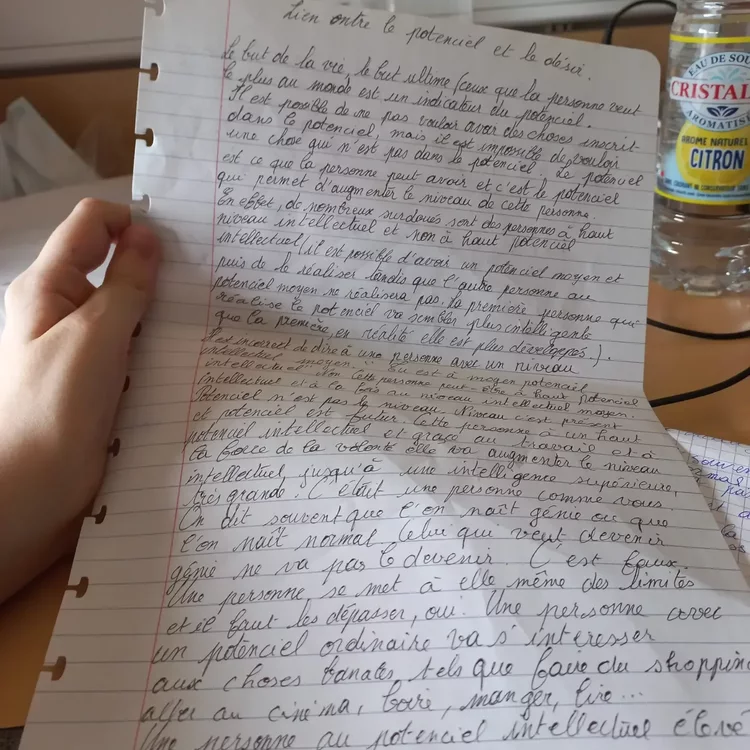 Lien entre le potenciel et le désir.
Le but de la vie, le but ultime (ceux que la personne veut
le plus au monde est un indicateur du potenciel.
Il est possible de ne pas vouloir avoir des choses inscrit
dans le potenciel, mais il est impossible de vouloir
une chose qui n'est pas dans le potenciel. Le potenciel
est ce que la personne peut avoir et c'est le potenciel
qui permet d'augmenter le niveau de cette personne.
En effet, de nombreux surdoués sont des personnes à haut
niveau intellectuel et non à haut potenciel
intellectuel (il est possible d'avoir un potenciel moyen et
puis de le réaliser tandis que l'autre personne au
potenciel moyen ne réalisera pas, la première personne qui
réalise le potenciel va sembler plus intelligente
que la première, en réalité elle est plus développés.).
Il est incorrect de dire à une personne avec un niveau
intellectuel moyen : tu est à moyen potenciel
intellectuel. Non cette personne peut être à haut potenciel
intellectuel et à la fois au niveau intellectuel moyen.
Potenciel n'est pas le niveau. Niveau c'est présent
et potenciel est futur. Cette personne à un haut
potenciel intellectuel et grace au travail et à
la force de la volonté elle va augmenter le niveau
intellectuel jusqu'à une intelligence supérieure,
très grande. C'était une personne comme vous.
On dit souvent que l'on naît génie ou que
l'on naît normal. Celui qui veut devenir
génie ne va pas le devenir. C'est faux.
Une personne se met à elle même des limites
et il faut les dépasser, oui. Une personne avec
un potenciel ordinaire va s'intéresser
aux choses banales, tels que faire du shopping
aller au cinéma, boire, manger, lire...
Une personne au potenciel intellectuel élevé
EAU DE SOU
CRISTAL
AROMATIS
AROME NATUREL
CITRON